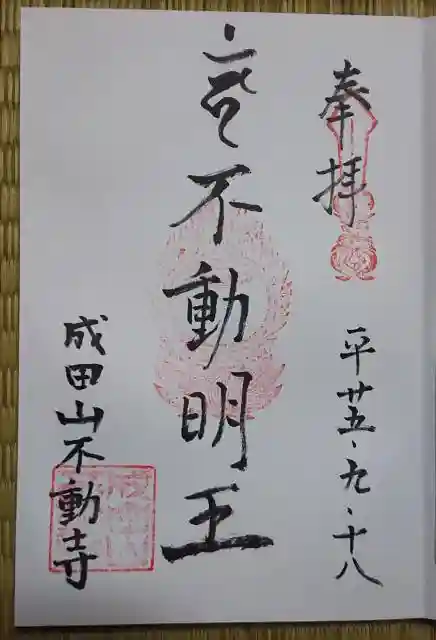 奉拝
平廿五、九、十八
不動明王
成田山不動寺